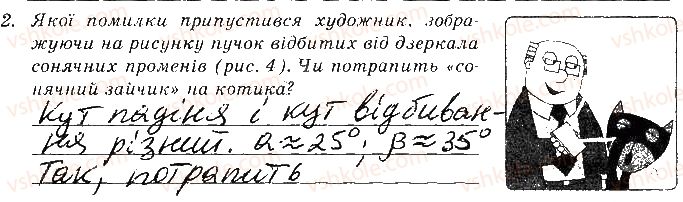 2. Якої помилки припустився художник, зобра-
жуючи на рисунку пучок відбитих від дзеркала
сонячних променів (рис. 4). Чи потрапить «со-
нячний зайчик» на котика?
Кут падіня і кут відбиван-
ня різний. α≈25°; β≈35°
Так, потрапить